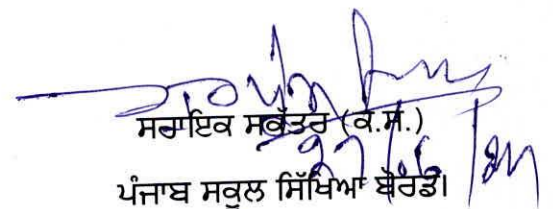 ਸਹਾਇਕ ਸਕੱਤਰ (ਕ.ਸ.)
27/6/24
ਪੰਜਾਬ ਸਕੂਲ ਸਿੱਖਿਆ ਬੋਰਡ।